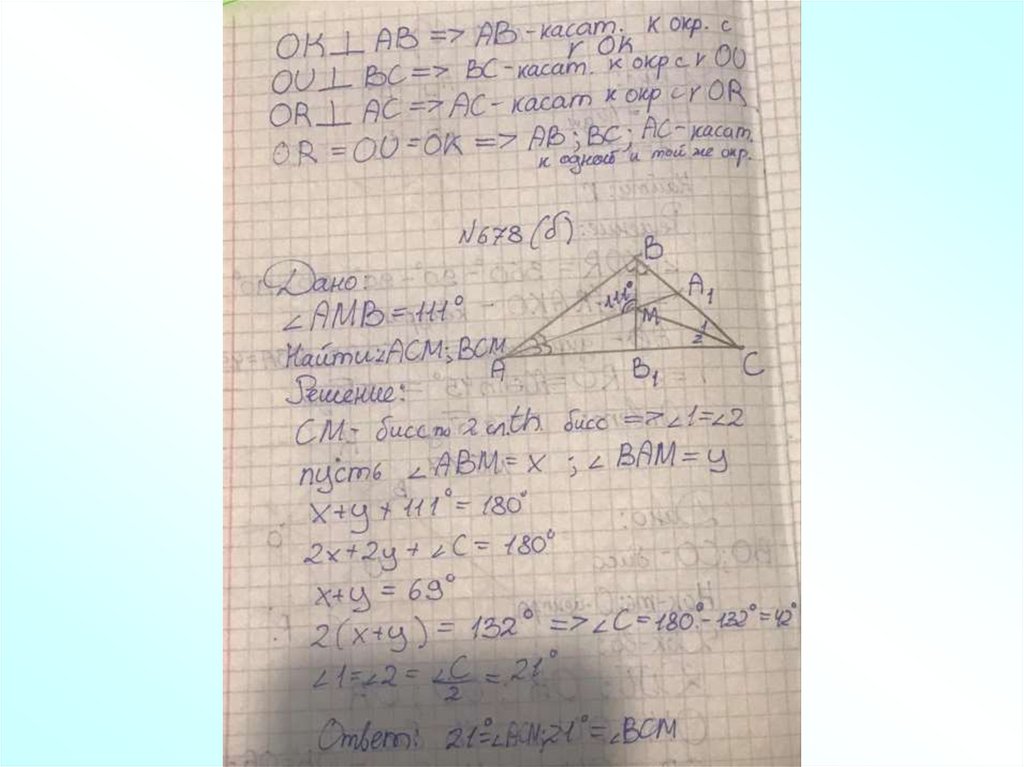 OK ⊥ AB => AB - касат. к окр. с
r OK
OU ⊥ BC => BC - касат. к окр с r OU
OR ⊥ AC => AC - касат к окр с r OR
OR = OU = OK => AB; BC; AC - касат.
к одной и той же окр.
N678 (б)
Дано:
∠AMB = 111°
Найти: ∠ACM; BCM
B
A1
111°
M
1
2
33
A
B1
C
Решение:
CM - бисс по 2 сл. th. бисс => ∠1=∠2
пусть ∠ABM = x ; ∠BAM = y
x+y+111° = 180°
2x+2y+∠C = 180°
x+y = 69°
2(x+y) = 132° => ∠C = 180° - 132° = 42°
∠1=∠2 = ∠C/2 = 21°
Ответ: 21°=∠ACM; 21°=∠BCM